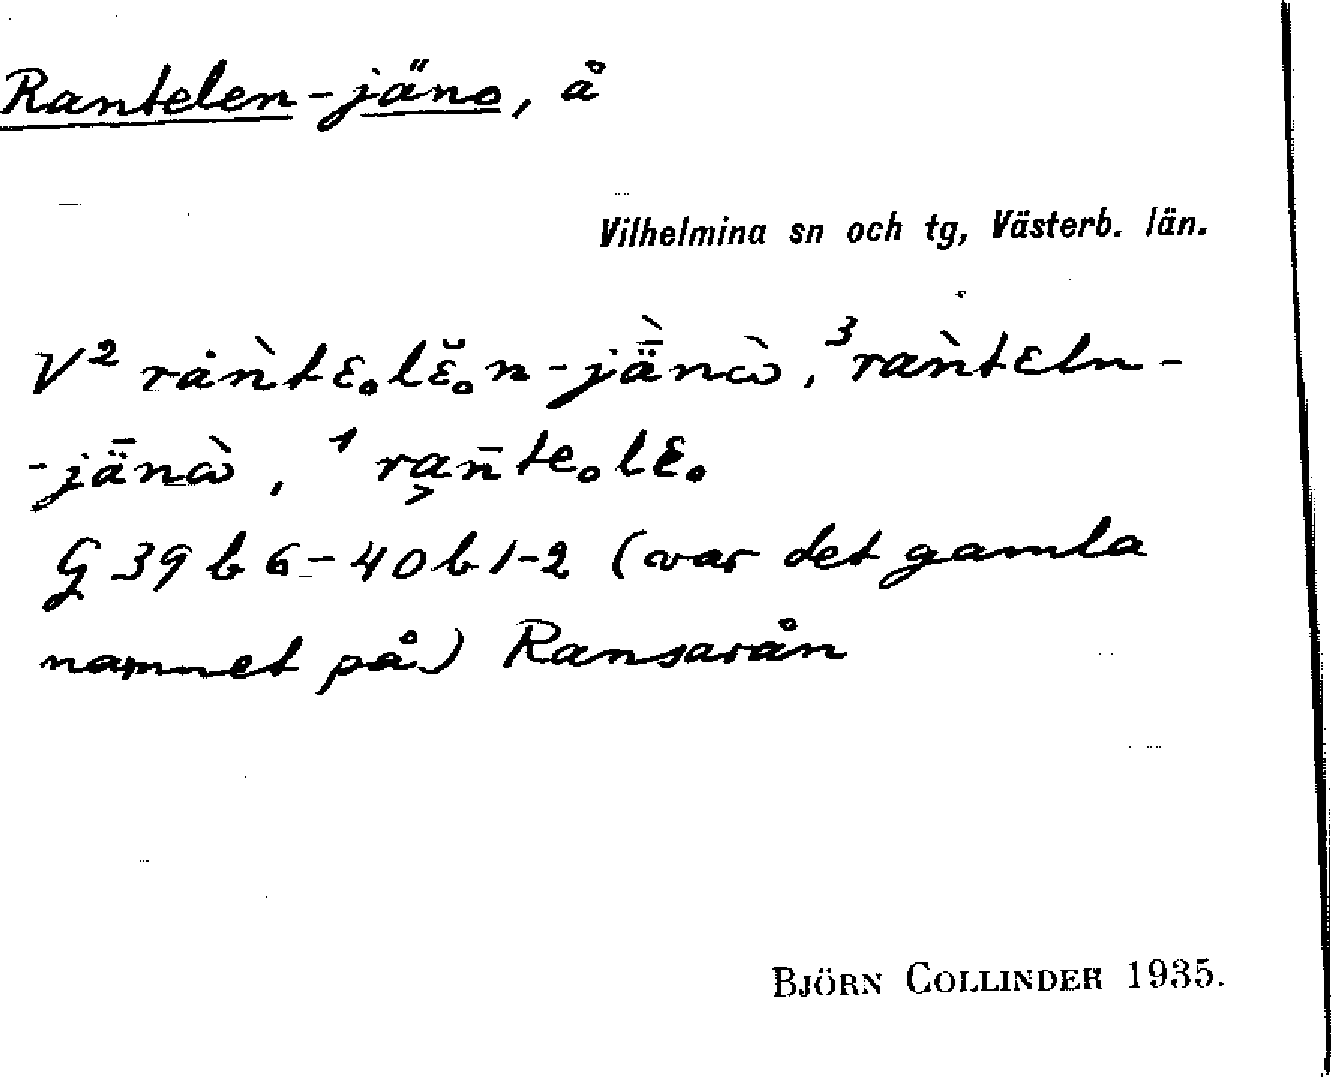 Rantelen-jäno, å
Vilhelmina sn och tg, Västerb. län.
V² rȧǹtɛ₀lɛ̆₀n-jǟ̀nὼ, ³raǹtɛln-
-jǟnὼ, ¹ ra̬n̄te₀lɛ₀
G 39 b 6-40 b 1-2 (var det gamla
namnet på) Ransarån
BJÖRN COLLINDER 1935.